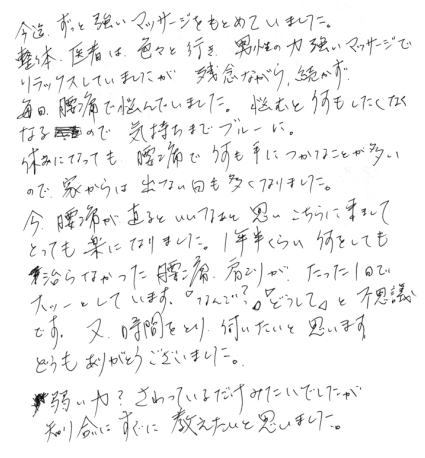 今迄、ずっと強いマッサージをもとめていました。
整体、医者は、色々と行き、男性の力強いマッサージで
リラックスしていましたが 残念ながら、続かず
毎日、腰痛で悩んでいました。悩むと何もしたくなく
なるので 気持ちまでブルーに。
休みになっても 腰痛で何も手につかることが多い
ので、家からは出ない日も多くなりました。
今、腰痛が直るといいなあと思いこちらに来まして
とっても楽になりました。1年半くらい何をしても
治らなかった腰痛、肩こりが、たった1日で
スッーとしています。「なんで?」「どうして」と不思議
です。又、時間をとり、伺いたいと思います
どうもありがとうございました。
弱い力?さわっているだけみたいでしたが
知り合いにすぐに教えたいと思いました。